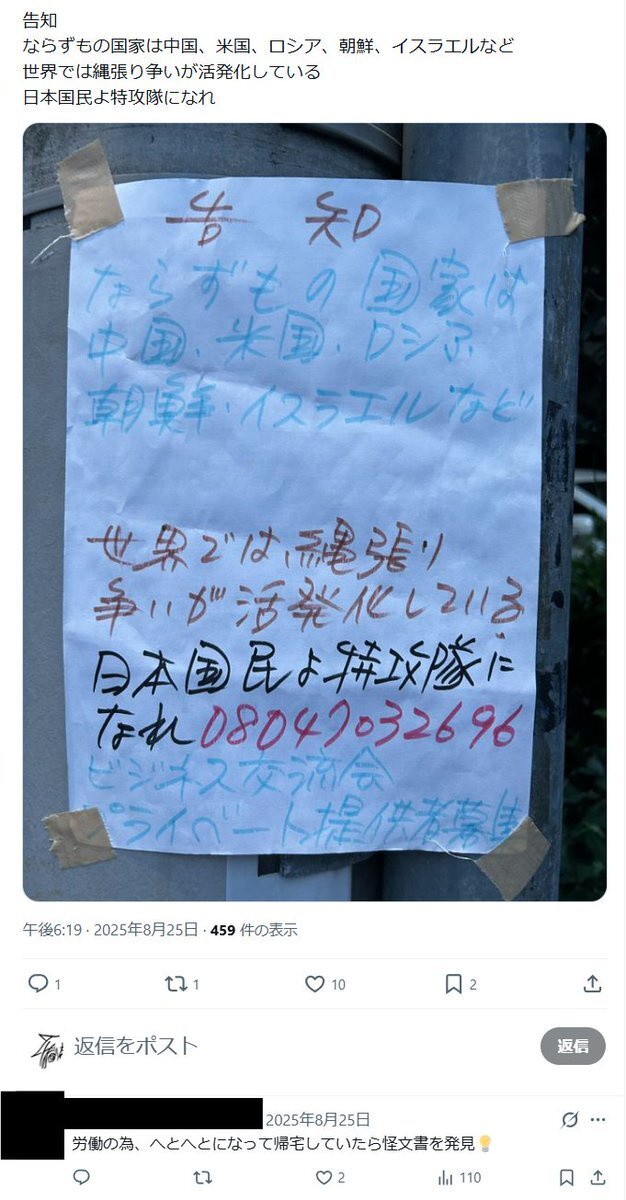 告知
ならずもの国家は中国、米国、ロシア、朝鮮、イスラエルなど
世界では縄張り争いが活発化している
日本国民よ特攻隊になれ
告 知
ならずもの国家は
中国、米国、ロシア
朝鮮、イスラエルなど
世界では、縄張り
争いが活発化している
日本国民よ特攻隊に
なれ08047032696
ビジネス交流会
プライベート提供者募集
午後6:19 · 2025年8月25日 · 459 件の表示
1 1 10 2
返信をポスト 返信
2025年8月25日
労働の為、へとへとになって帰宅していたら怪文書を発見💡
2 110